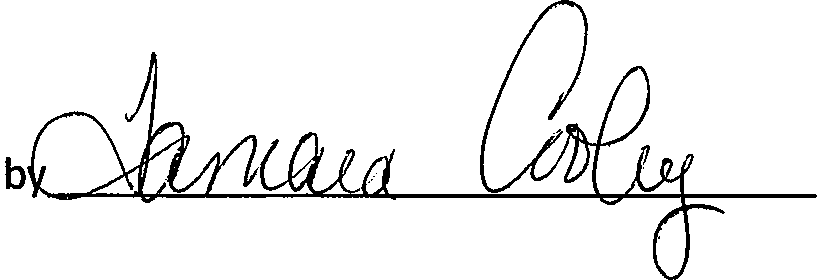 by Tamara Cooley